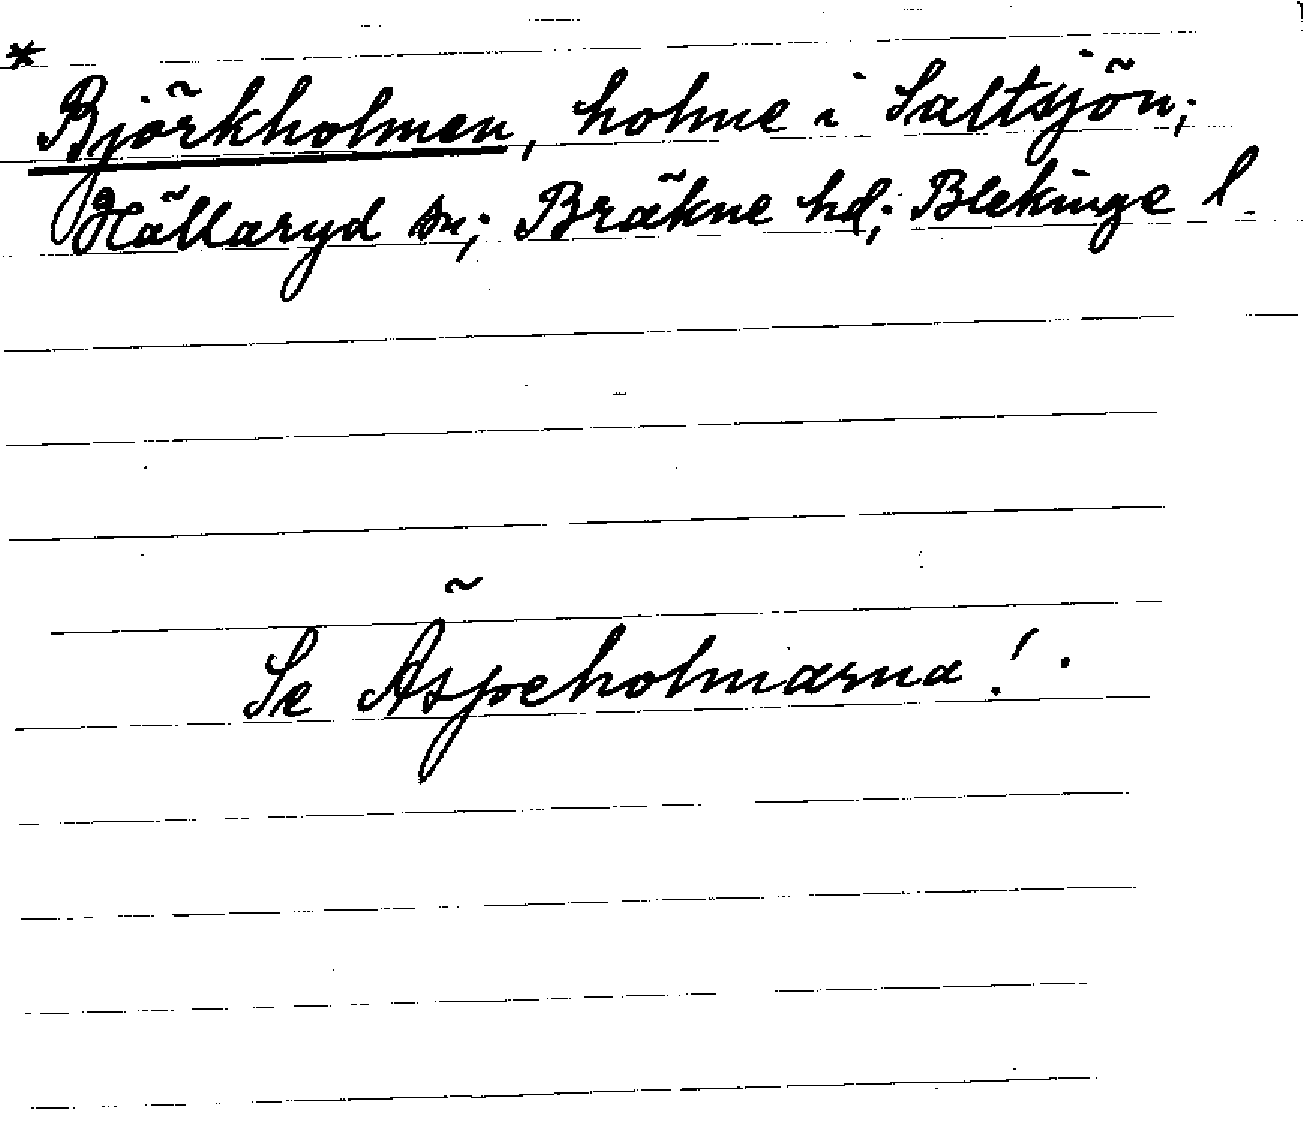 *
Björkholmen, holme i Saltsjön;
Hällaryd sn; Bräkne hd; Blekinge l.
Se Äspeholmarna!.